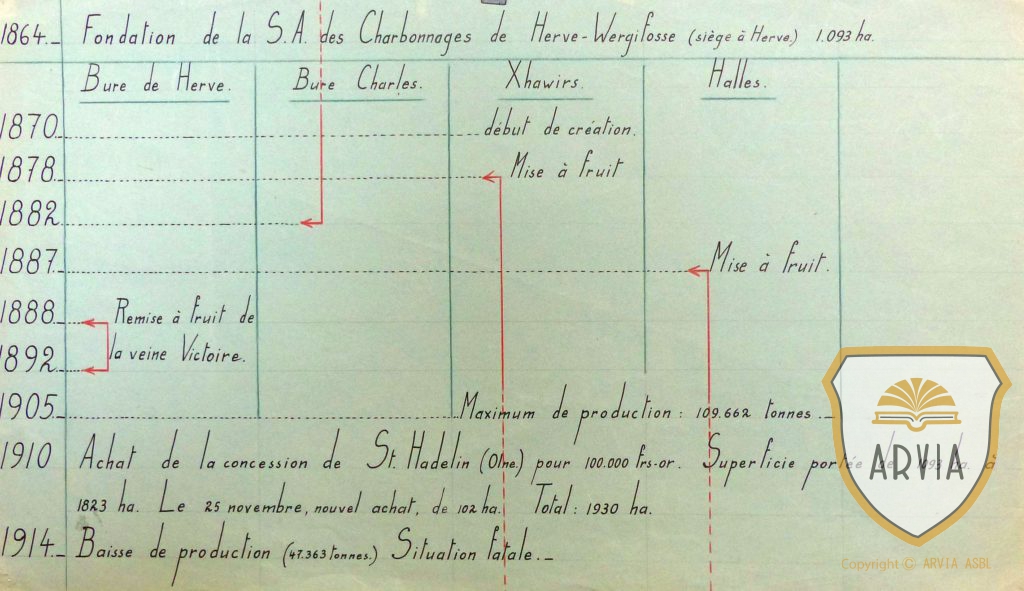 1864._ Fondation de la S.A. des Charbonnages de Herve-Wergifosse (siège à Herve.) 1.093 ha.
Bure de Herve. Bure Charles. Xhawirs. Halles.
1870 début de création.
1878 Mise à fruit
1882
1887 Mise à fruit.
1888 Remise à fruit de
1892 la veine Victoire.
1905 Maximum de production : 109.662 tonnes._
1910 Achat de la concession de St. Hadelin (Olne.) pour 100.000 frs-or. Superficie portée de 1093 ha. à
1823 ha. Le 25 novembre, nouvel achat, de 102 ha. Total : 1930 ha.
1914._ Baisse de production (47.363 tonnes.) Situation fatale._
ARVIA
Copyright © ARVIA ASBL